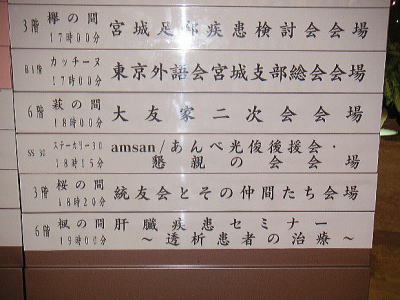 3階 欅の間 17時00分 宮城足部疾患検討会会場
B1階 カッチーヌ 17時00分 東京外語会宮城支部総会会場
6階 萩の間 18時00分 大友家二次会会場
SS 30 ステーカリー30 18時15分 amsan/あんべ光俊後援会・
懇親の会会場
3階 桜の間 18時20分 統友会とその仲間たち会場
6階 楓の間 19時00分 肝臓疾患セミナー
〜透析患者の治療〜